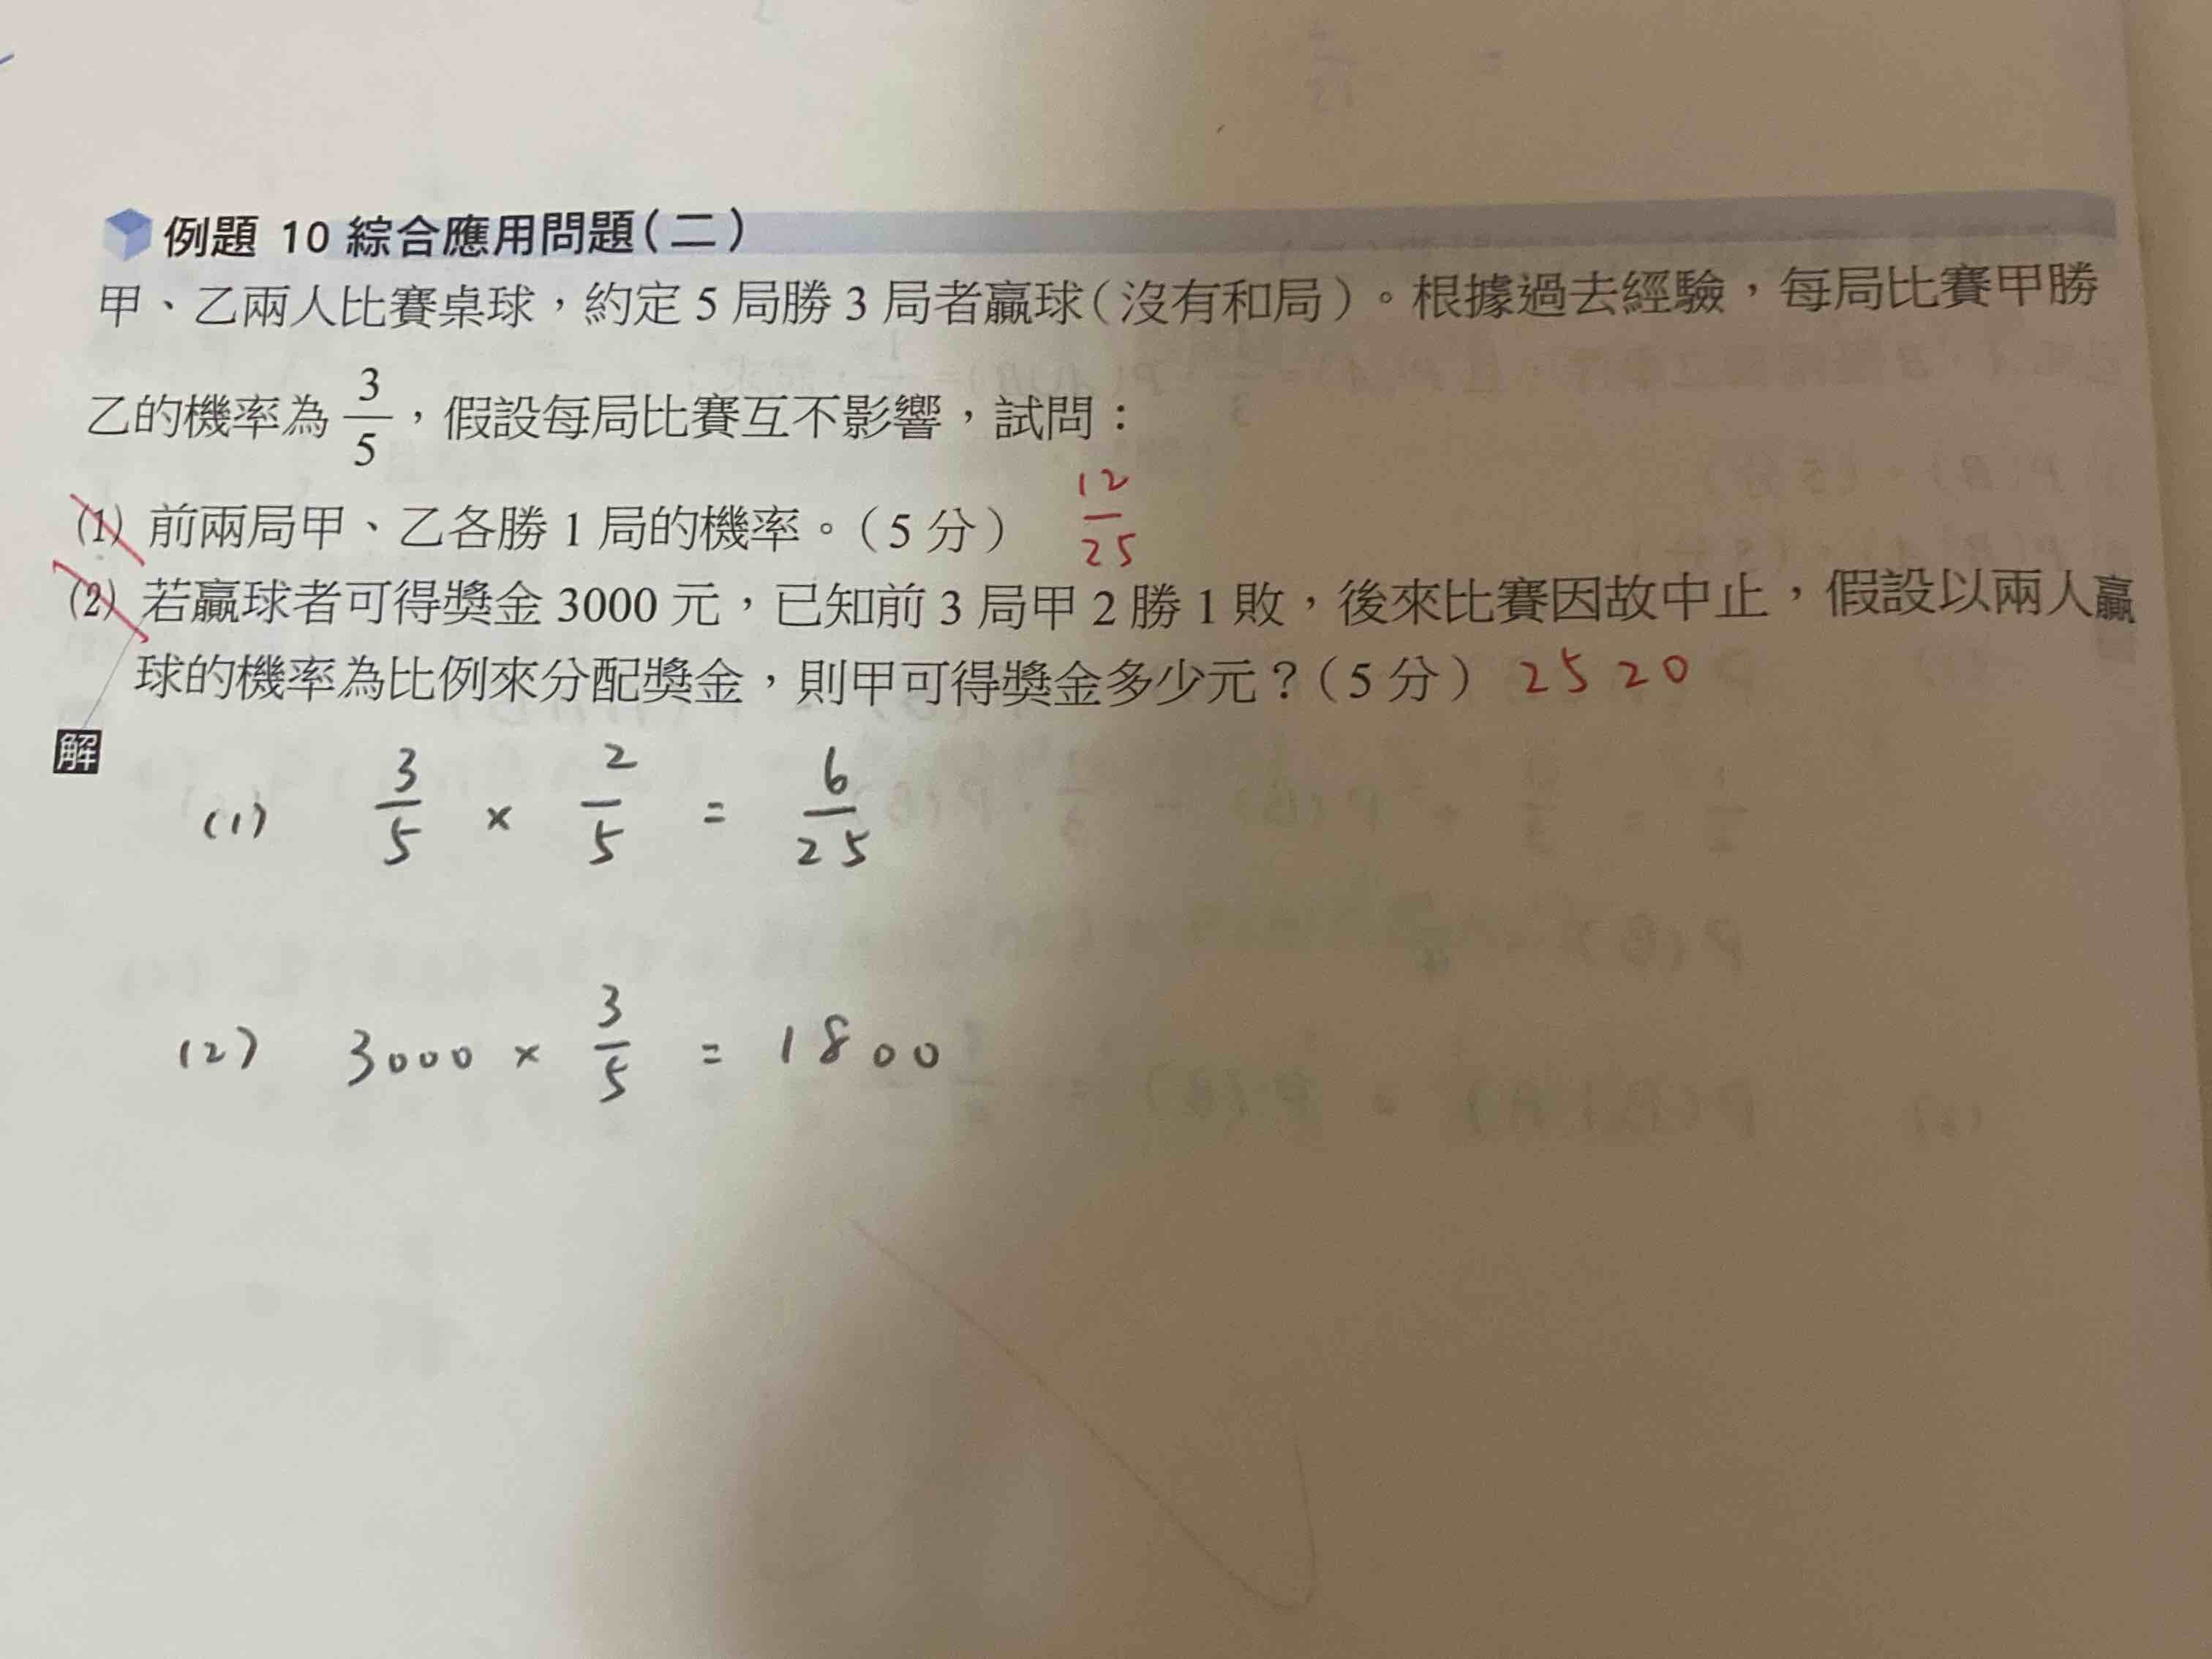 例題 10 綜合應用問題(二)
甲、乙兩人比賽桌球，約定 5 局勝 3 局者贏球(沒有和局)。根據過去經驗，每局比賽甲勝
乙的機率為 3/5，假設每局比賽互不影響，試問：
(1) 前兩局甲、乙各勝 1 局的機率。(5 分) 12/25
(2) 若贏球者可得獎金 3000 元，已知前 3 局甲 2 勝 1 敗，後來比賽因故中止，假設以兩人贏
球的機率為比例來分配獎金，則甲可得獎金多少元？(5 分) 2520
解
(1) 3/5 × 2/5 = 6/25
(2) 3000 × 3/5 = 1800